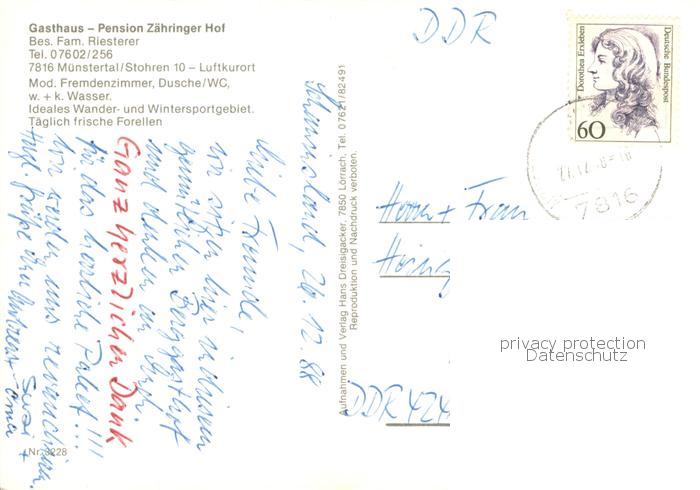 Gasthaus – Pension Zähringer Hof
Bes. Fam. Riesterer
Tel. 07602/256
7816 Münstertal/Stohren 10 – Luftkurort
Mod. Fremdenzimmer, Dusche/WC,
w. + k. Wasser.
Ideales Wander- und Wintersportgebiet.
Täglich frische Forellen
Schauinsland, 26.12.88
Liebe Freunde,
wir sitzen hier in diesem
gemütlichen Berggasthof
und denken an Euch.
Ganz herzlichen Dank
für das herrliche Paket!!!
Wir werden uns revanchieren.
Herzl. Grüße
Susi +
Nr. 3228
Aufnahmen und Verlag Hans Dreisigacker, 7850 Lörrach, Tel. 07621/82491
Reproduktion und Nachdruck verboten.
DDR
Herrn + Frau
DDR 424
Dorothea Erxleben
Deutsche Bundespost
60
7816
privacy protection
Datenschutz